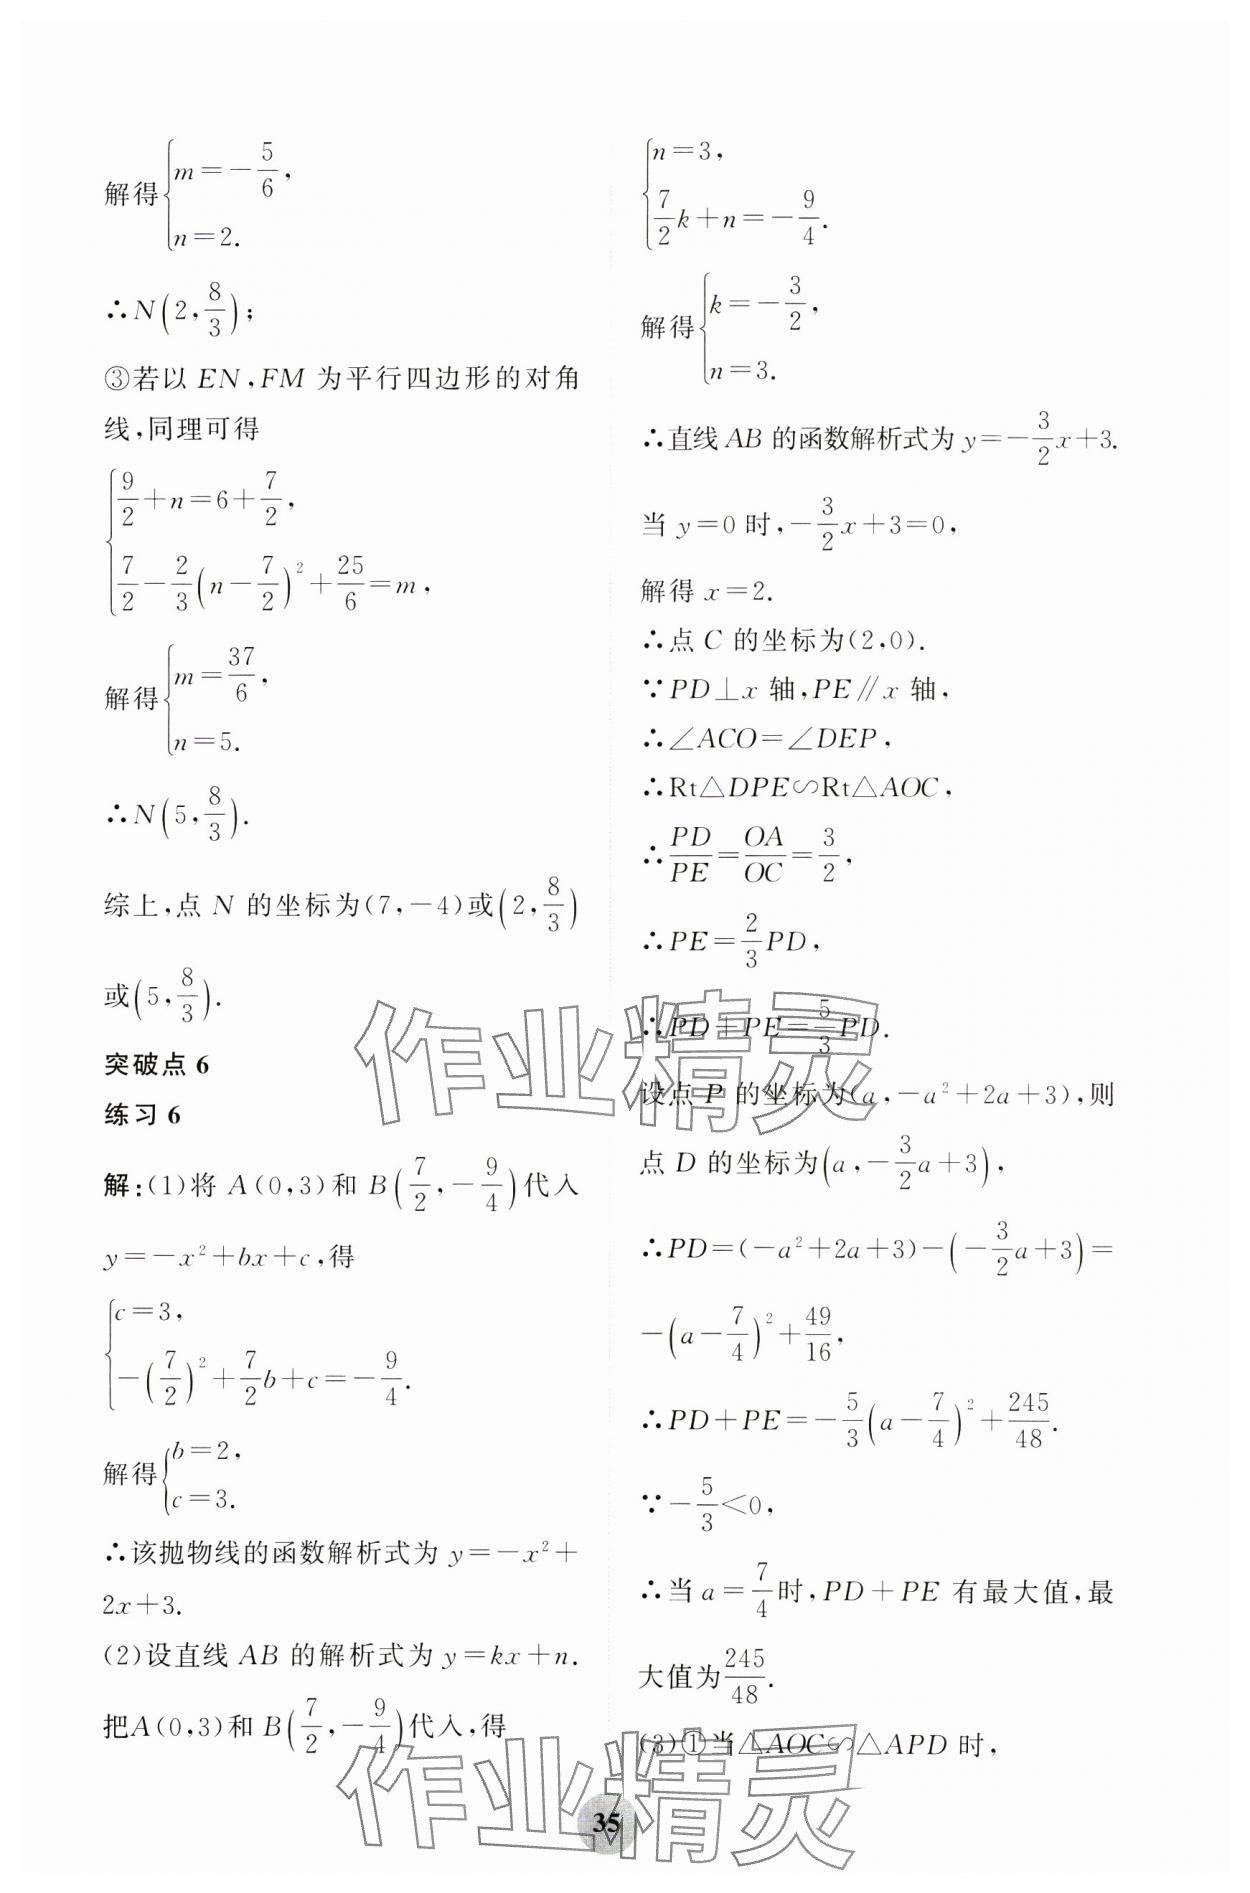 解得{m=-5/6,
n=2.
∴N(2,8/3);
③若以 EN,FM 为平行四边形的对角
线,同理可得
{9/2+n=6+7/2,
7/2-2/3(n-7/2)²+25/6=m,
解得{m=37/6,
n=5.
∴N(5,8/3).
综上,点 N 的坐标为(7,-4)或(2,8/3)
或(5,8/3).
突破点 6
练习 6
解:(1)将 A(0,3)和 B(7/2,-9/4)代入
y=-x²+bx+c,得
{c=3,
-(7/2)²+7/2b+c=-9/4.
解得{b=2,
c=3.
∴该抛物线的函数解析式为 y=-x²+
2x+3.
(2)设直线 AB 的解析式为 y=kx+n.
把A(0,3)和 B(7/2,-9/4)代入,得
{n=3,
7/2k+n=-9/4.
解得{k=-3/2,
n=3.
∴直线 AB 的函数解析式为 y=-3/2x+3.
当 y=0 时,-3/2x+3=0,
解得 x=2.
∴点 C 的坐标为(2,0).
∵PD⊥x 轴,PE∥x 轴,
∴∠ACO=∠DEP,
∴Rt△DPE∽Rt△AOC,
∴PD/PE=OA/OC=3/2,
∴PE=2/3PD,
∴PD+PE=5/3PD.
设点 P 的坐标为(a,-a²+2a+3),则
点 D 的坐标为(a,-3/2a+3),
∴PD=(-a²+2a+3)-(-3/2a+3)=
-(a-7/4)²+49/16,
∴PD+PE=-5/3(a-7/4)²+245/48.
∵-5/3<0,
∴当 a=7/4时,PD+PE 有最大值,最
大值为245/48.
(3)①当△AOC∽△APD 时,
作业精灵
作业精灵
35